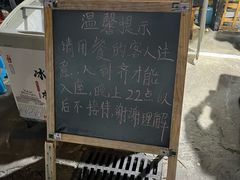 温馨提示
请用爱的客人注
意:人到齐才能
入座,晚上22点以
后不接待,谢谢理解
冰